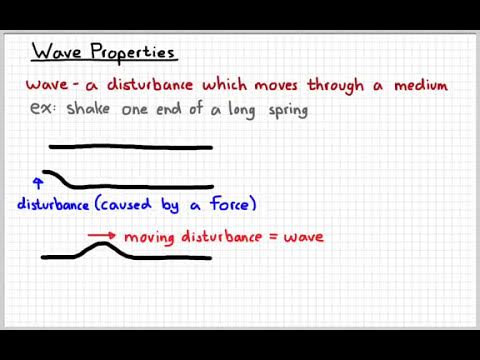 Wave Properties
wave - a disturbance which moves through a medium
ex: shake one end of a long spring
disturbance (caused by a force)
moving disturbance = wave